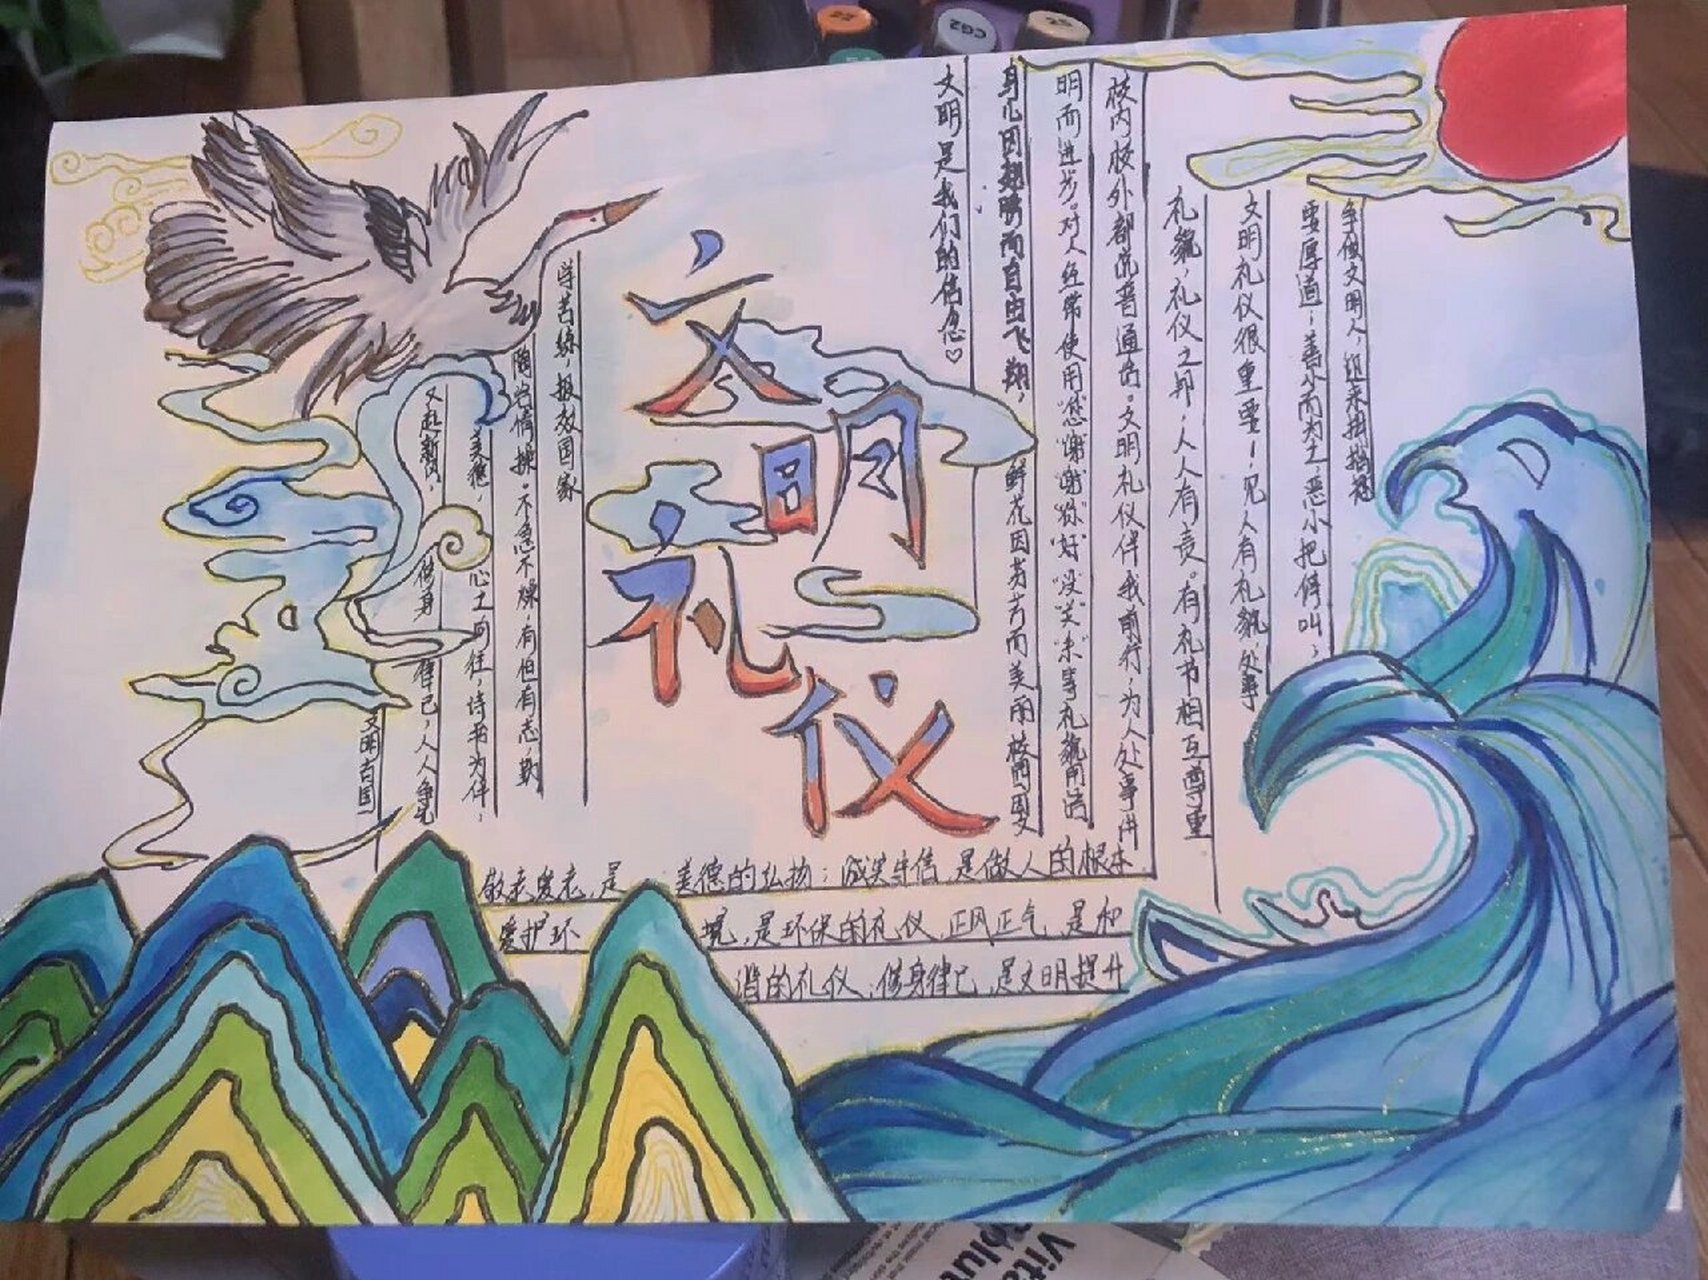 文明礼仪
争做文明人，
要厚道；善小而为之，恶小把停叫；
文明礼仪很重要！见人有礼貌，处事
礼貌，礼仪之邦，人人有责。有礼节相互尊重
校内校外都说普通话。文明礼仪伴我前行，为人处事讲
明而进步。对人经常使用“您”“谢谢”“你好”“没关系”等礼貌用语
鸟儿因翅膀而自由飞翔，鲜花因芬芳而美丽校园因文
文明是我们的信念♡
学苦练，报效国家
陶冶情操。不急不燥，有恒有志，勤
美德，心之向往，诗书为伴，
又起新风，修身律己，人人争先
文明古国
敬老爱老，是美德的弘扬；诚实守信，是做人的根本
爱护环境，是环保的礼仪，正风正气，是和
谐的礼仪，修身律己，是文明提升
22
CG2
25
Vita